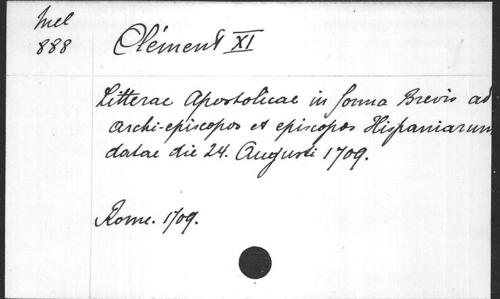 Mel
888
Clément XI
Litterae Apostolicae in forma Brevis ad
archi-episcopos et episcopos Hispaniarum
datae die 24. Augusti 1709.
Rome. 1709.